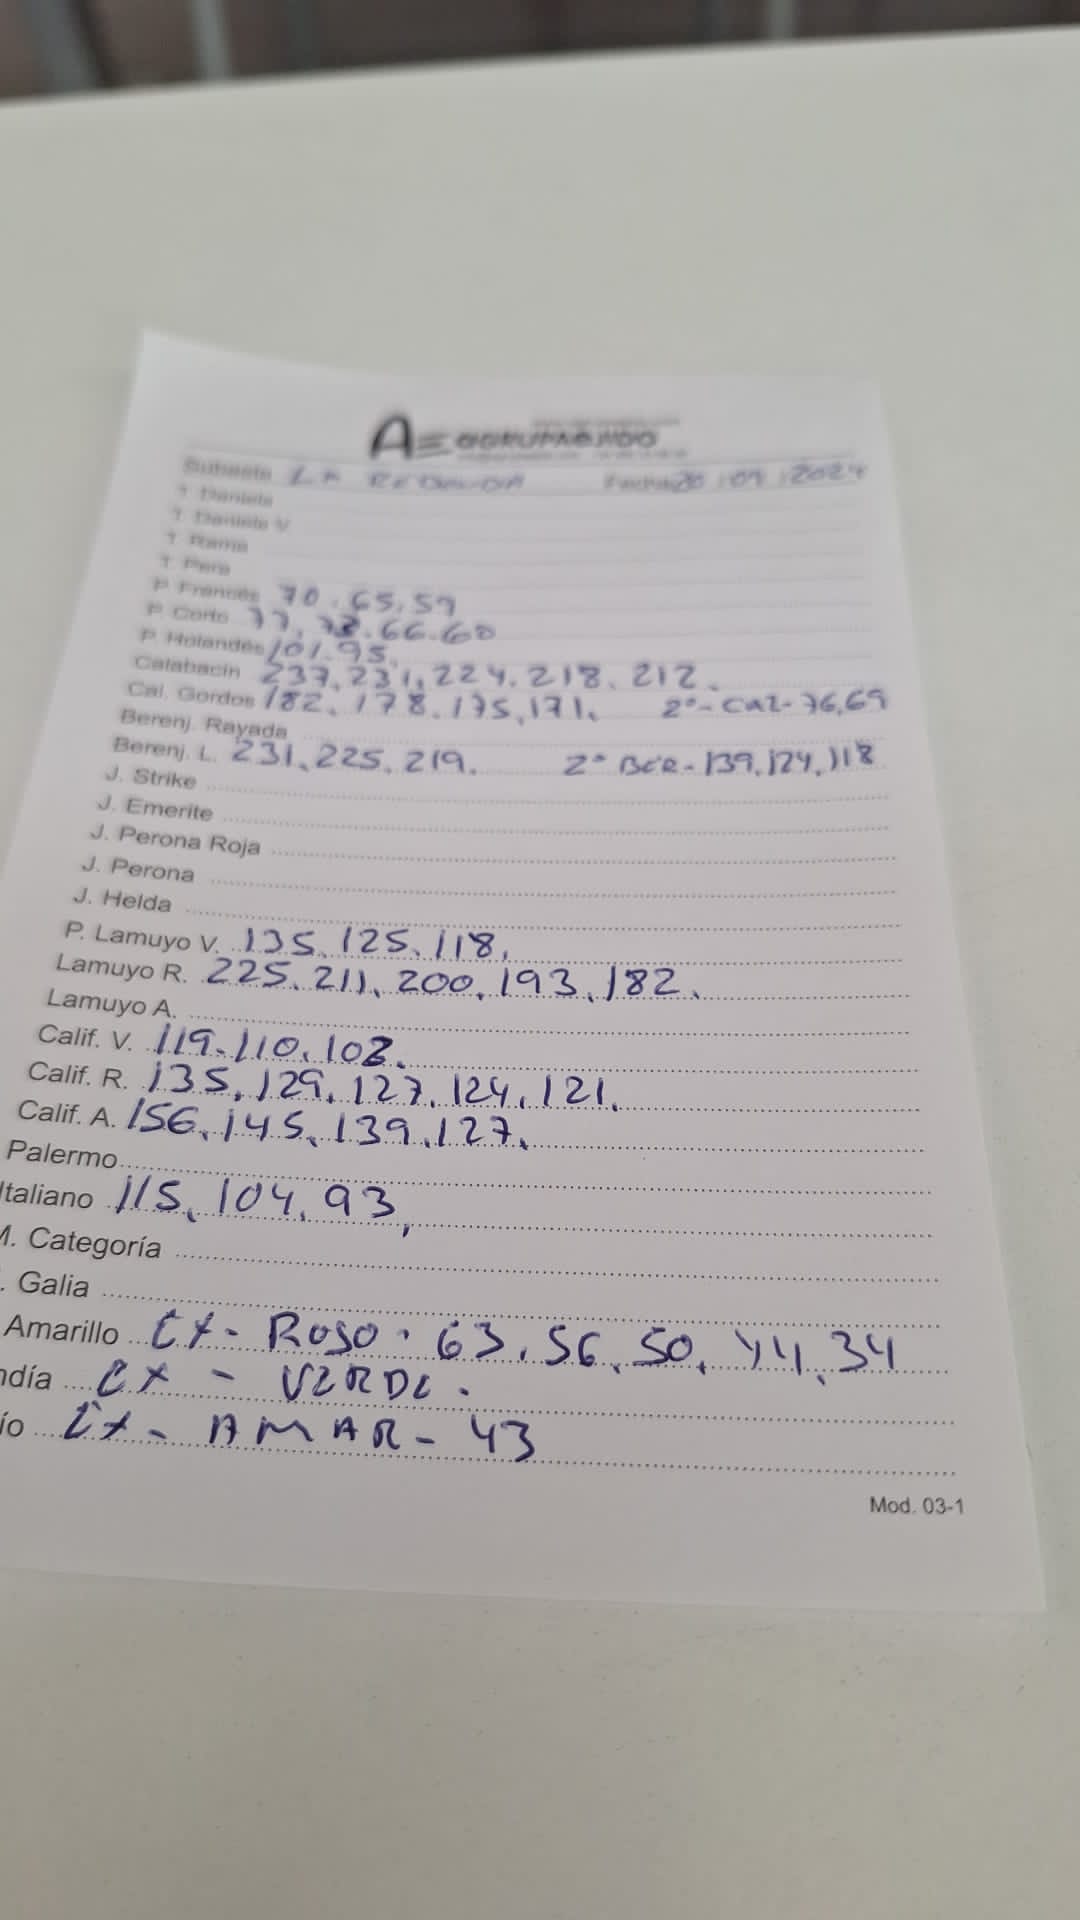 Subasta LA REDONDA Fecha 20 / 09 / 2024
T. Daniela
T. Daniela V
T. Rama
T. Pera
P. Francés 70. 65. 59
P. Corto 77. 73. 66. 60
P. Holandés 101. 95.
Calabacín 237. 231. 224. 218. 212.
Cal. Gordos 182. 178. 175. 171. 2º - CAL - 76,69
Berenj. Rayada
Berenj. L. 231. 225. 219. 2º BER - 139. 124. 118
J. Strike
J. Emerite
J. Perona Roja
J. Perona
J. Helda
P. Lamuyo V. 135. 125. 118.
Lamuyo R. 225. 211. 200. 193. 182.
Lamuyo A.
Calif. V. 119. 110. 102.
Calif. R. 135. 129. 127. 124. 121.
Calif. A. 156. 145. 139. 127.
Palermo
Italiano 115. 104. 93.
M. Categoría
. Galia
Amarillo CX - ROJO . 63. 56. 50. 44. 34
ndía CX - VERDE .
ío CX - AMAR - 43
Mod. 03-1